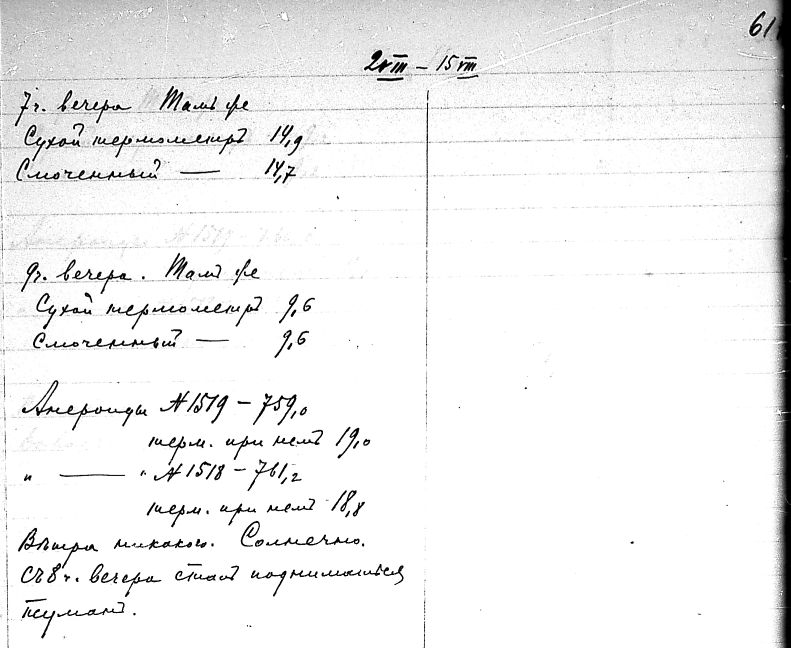 61
2 VIII – 15 VIII
7 ч. вечера Тамъ же
Сухой термометръ 14,9
Смоченный — 14,7
9 ч. вечера. Тамъ же
Сухой термометръ 9,6
Смоченный — 9,6
Анероиды N 1519 – 759,0
терм. при немъ 19,0
" — " N 1518 – 761,2
терм. при немъ 18,8
Вѣтра никакого. Солнечно.
Съ 8 ч. вечера сталъ подниматься
туманъ.